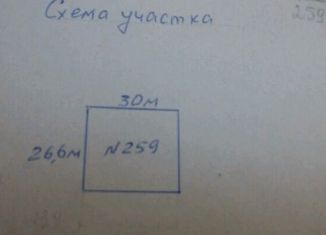 Схема участка
259
30м
26,6м
N259